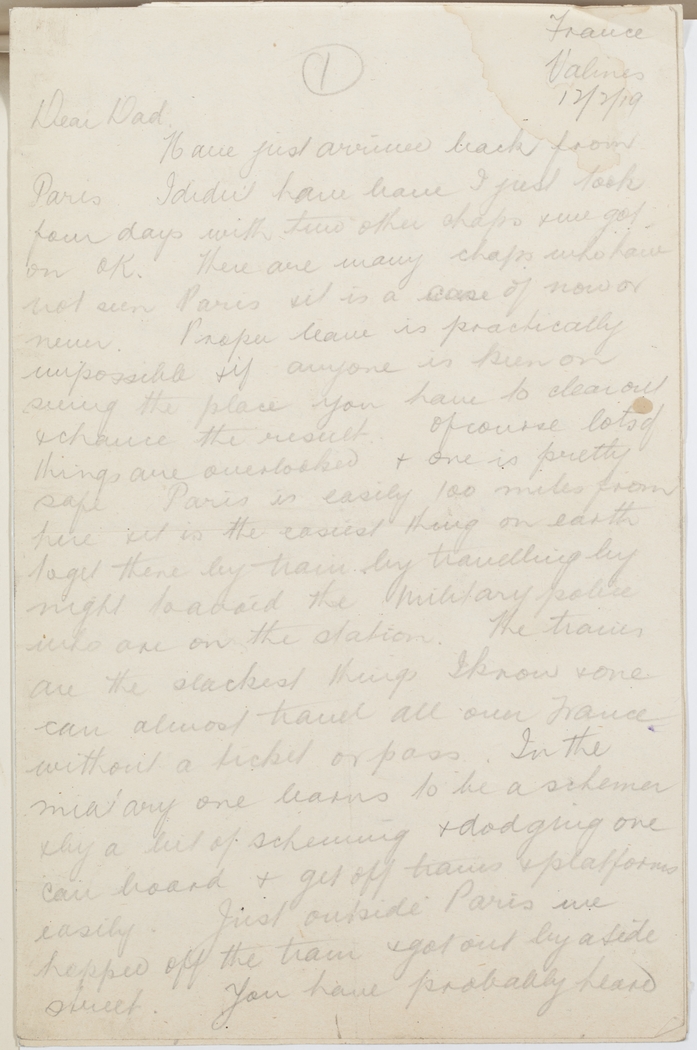 1
France
Valines
12/2/19
Dear Dad.
Have just arrived back from
Paris I didn't have leave I just took
four days with two other chaps & we got
on OK. There are many chaps who have
not seen Paris & it is a case of now or
never. Proper leave is practically
impossible & if anyone is keen on
seeing the place you have to clear out
& chance the result. Of course lots of
things are overlooked & one is pretty
safe Paris is easily 100 miles from
here & it is the easiest thing on earth
to get there by train by travelling by
night to avoid the Military police
who are on the station. The trains
are the slackest things I know & one
can almost travel all over France
without a ticket or pass. In the
military one learns to be a schemer
& by a bit of scheming & dodging one
can board & get off trains & platforms
easily. Just outside Paris we
hopped off the train & got out by a side
street. You have probably heard